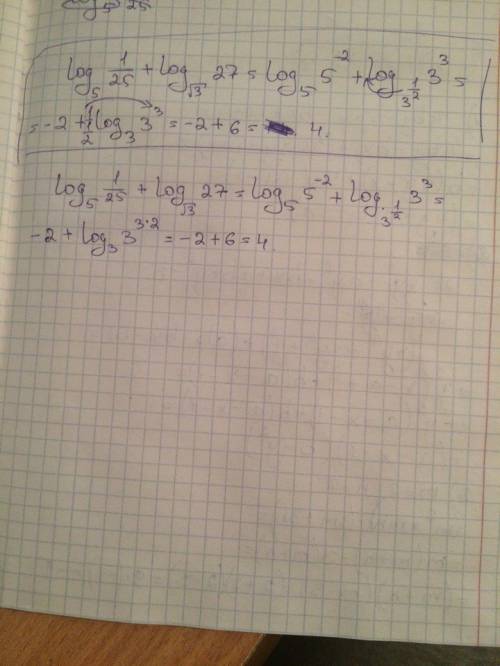 log₅ 25
log₅ 1/25 + log_√3 27 = log₅ 5⁻² + log_3^(1/2) 3³ =
= -2 + 1/(1/2) log₃ 3³ = -2 + 6 = 4.
log₅ 1/25 + log_√3 27 = log₅ 5⁻² + log_3^(1/2) 3³ =
-2 + log₃ 3^(3·2) = -2 + 6 = 4